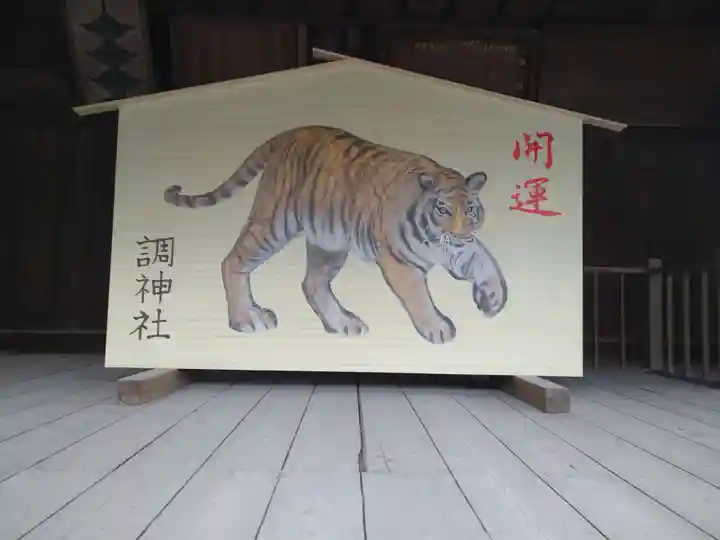 開運
調神社